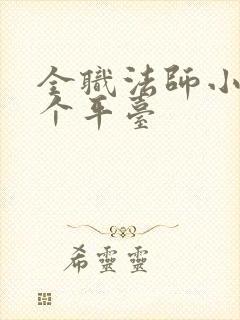 全職法師小
个平臺
希靈靈